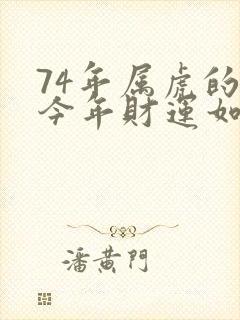 74年属虎的
今年財運如
潘黄門